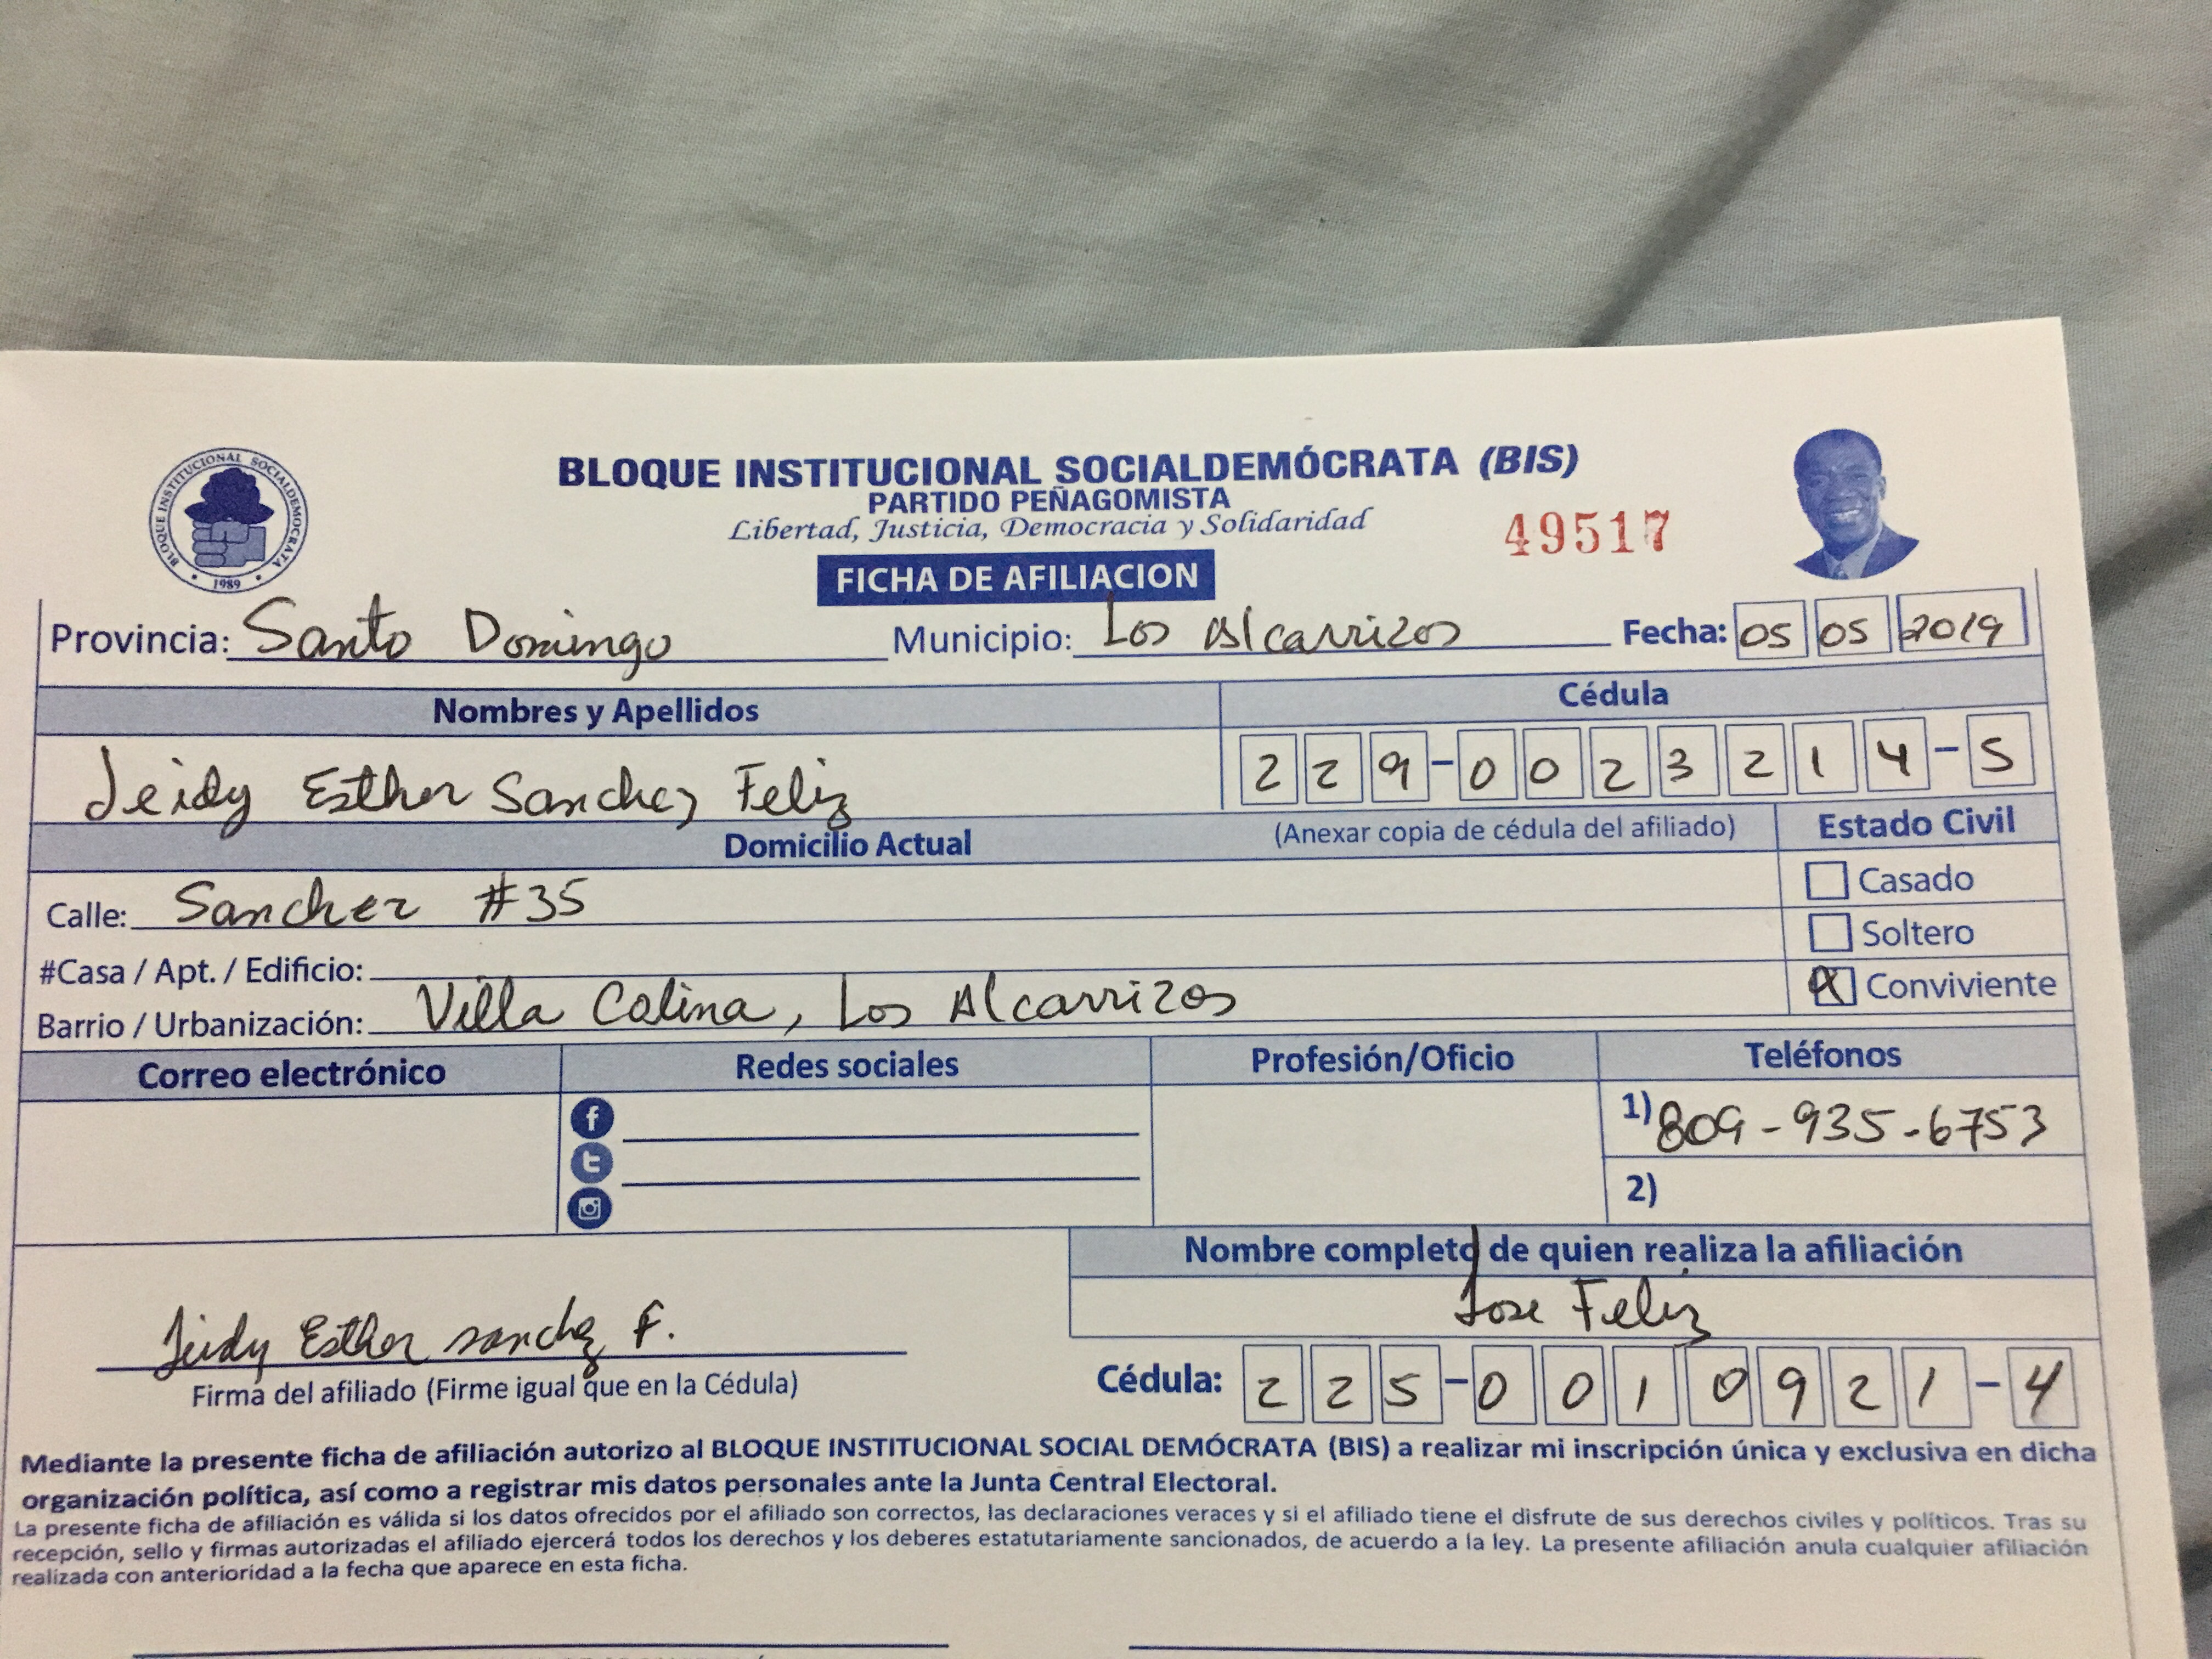 BLOQUE INSTITUCIONAL SOCIALDEMÓCRATA (BIS)
PARTIDO PEÑAGOMISTA
Libertad, Justicia, Democracia y Solidaridad
49517
BLOQUE INSTITUCIONAL SOCIALDEMOCRATA
1989
FICHA DE AFILIACION
Provincia: Santo Domingo Municipio: Los Alcarrizos Fecha: 05 05 2019
Nombres y Apellidos Cédula
Jeidy Esther Sanchez Feliz 229-0023214-5
Domicilio Actual (Anexar copia de cédula del afiliado) Estado Civil
Calle: Sanchez #35 Casado
Soltero
#Casa / Apt. / Edificio: X Conviviente
Barrio / Urbanización: Villa Colina, Los Alcarrizos
Correo electrónico Redes sociales Profesión/Oficio Teléfonos
1) 809-935-6753
2)
Nombre completo de quien realiza la afiliación
Jose Feliz
Jeidy Esther sanchez F.
Firma del afiliado (Firme igual que en la Cédula) Cédula: 225-0010921-4
Mediante la presente ficha de afiliación autorizo al BLOQUE INSTITUCIONAL SOCIAL DEMÓCRATA (BIS) a realizar mi inscripción única y exclusiva en dicha
organización política, así como a registrar mis datos personales ante la Junta Central Electoral.
La presente ficha de afiliación es válida si los datos ofrecidos por el afiliado son correctos, las declaraciones veraces y si el afiliado tiene el disfrute de sus derechos civiles y políticos. Tras su
recepción, sello y firmas autorizadas el afiliado ejercerá todos los derechos y los deberes estatutariamente sancionados, de acuerdo a la ley. La presente afiliación anula cualquier afiliación
realizada con anterioridad a la fecha que aparece en esta ficha.